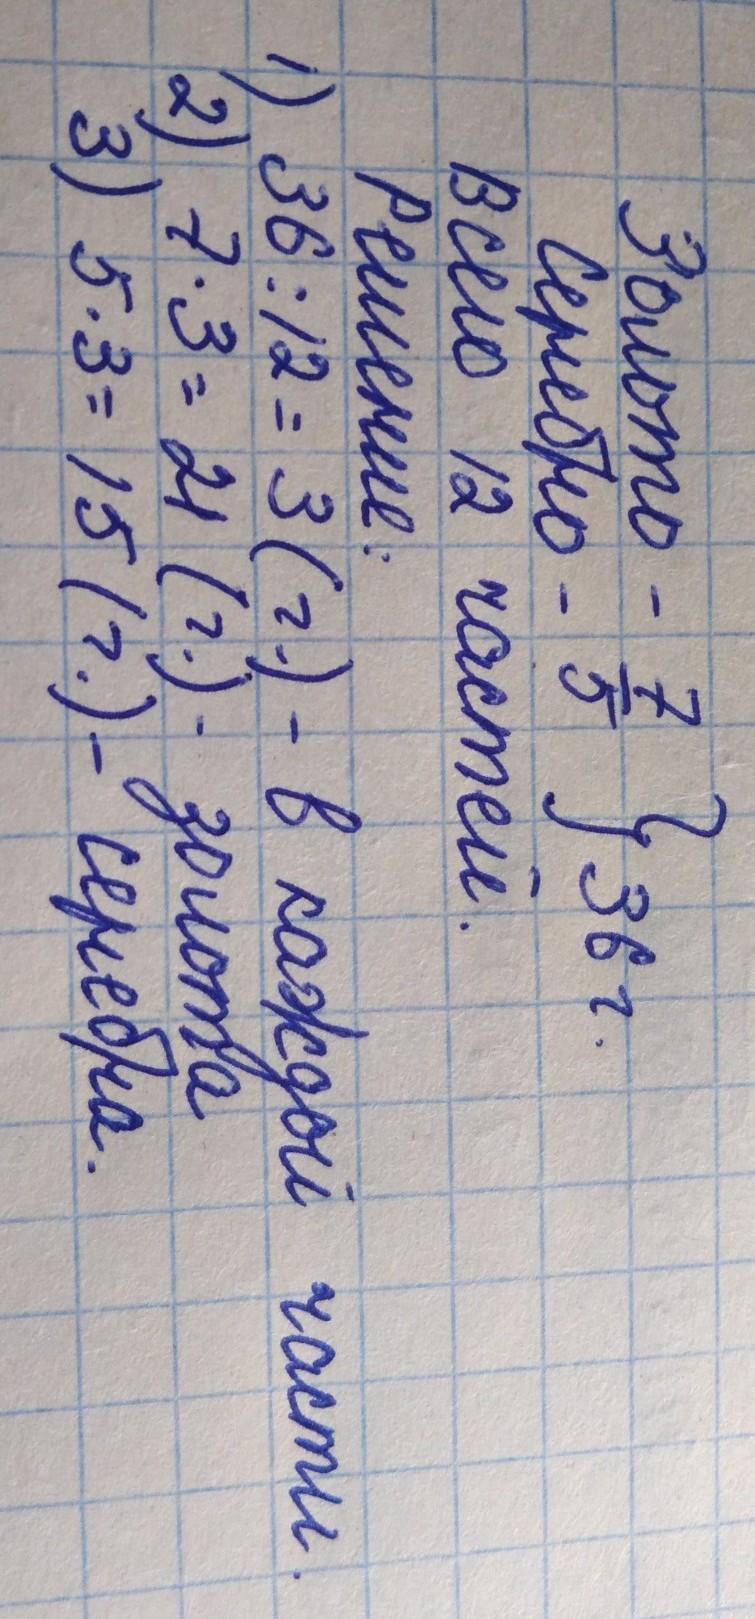 Золото - 7
Серебро - 5 } 36 г.
Всего 12 частей.
Решение:
1) 36 : 12 = 3 (г.) - в каждой части.
2) 7 · 3 = 21 (г.) - золота
3) 5 · 3 = 15 (г.) - серебра.